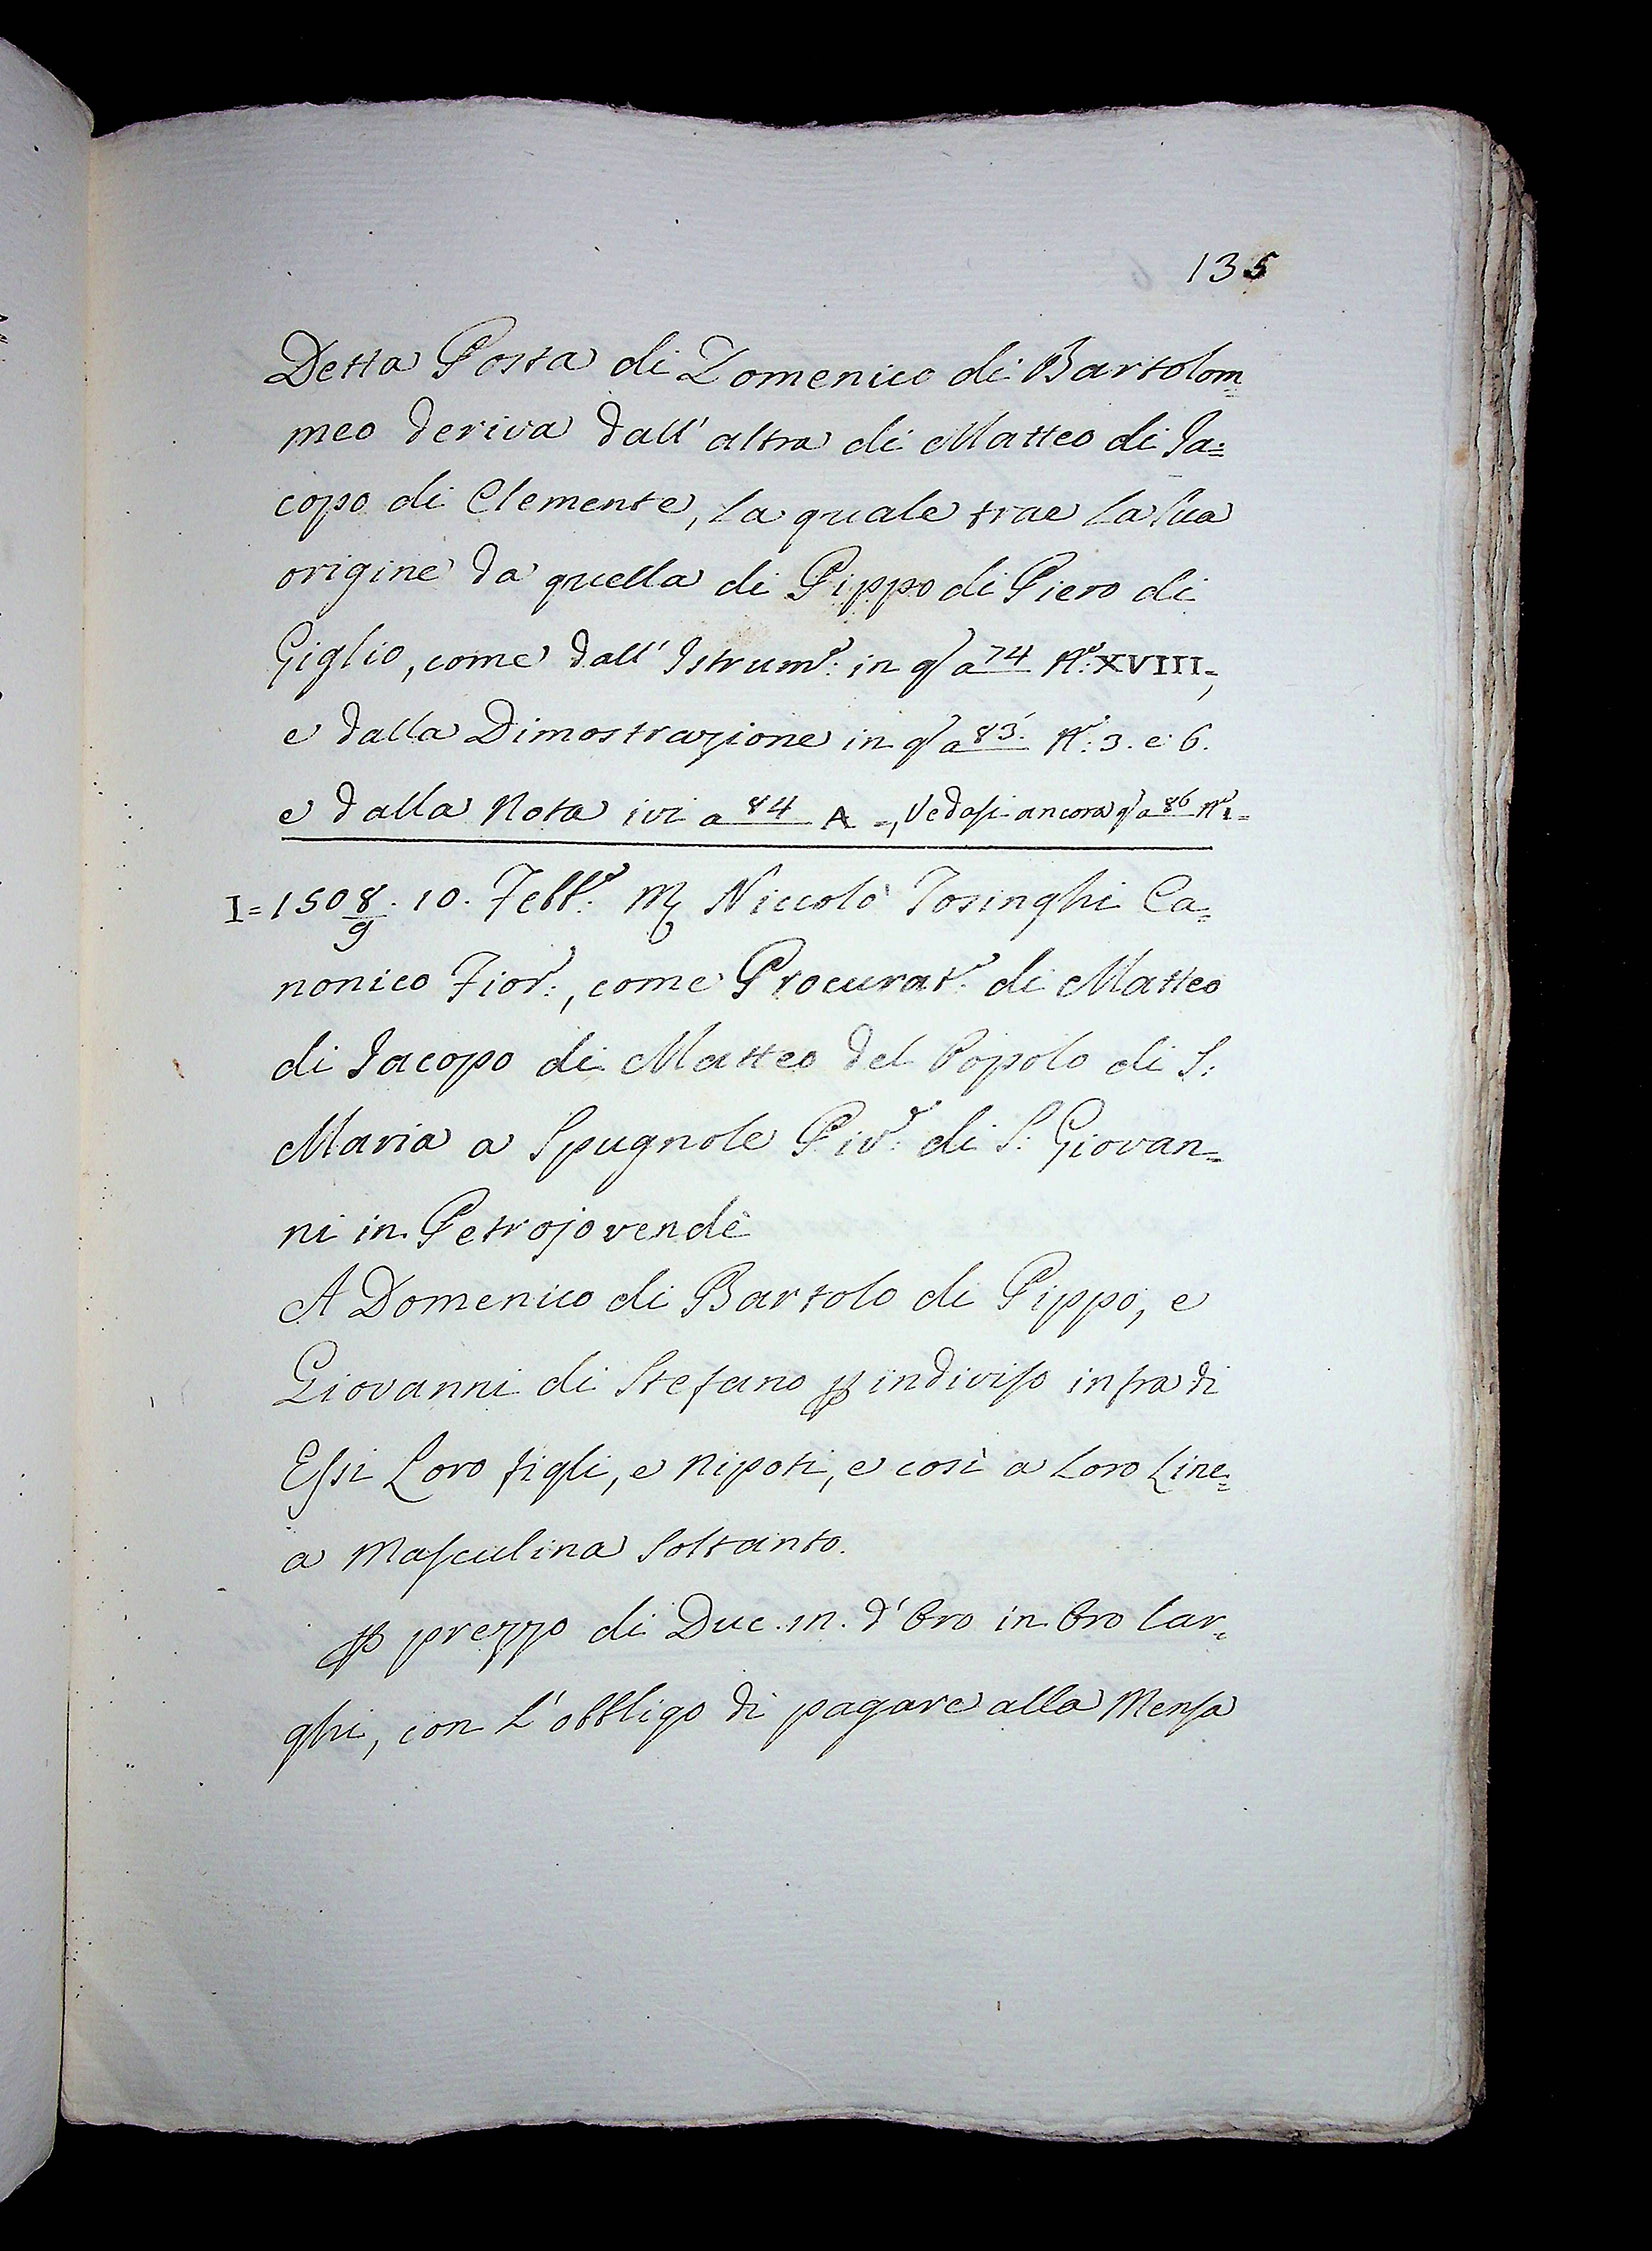 135
Detta Posta di Domenico di Bartolom=
meo deriva dall' altra di Matteo di Ja=
copo di Clemente, la quale trae la sua
origine da quella di Pippo di Piero di
Giglio, come dall' Istrum:º in qº a 74 Nº: XVIII=,
e dalla Dimostrazione in qº a 83. Nº: 3. e 6.
e dalla Nota ivi a 84 A =, Vedasi ancora qº a 86 Nº 1=
I = 1508/9. 10. Febbº: Mº Niccolò Tosinghi Ca=
nonico Fiorº:, come Procuratº: di Matteo
di Jacopo di Matteo del Popolo di S:
Maria a Spugnole Pivº: di S: Giovan=
ni in Petrojo vendè
A Domenico di Bartolo di Pippo, e
Giovanni di Stefano ꝑ indiviso infra di
Essi Loro figli, e Nipoti, e così a Loro Line=
a Masculina Soltanto.
ꝑ prezzo di Duc. in. d'Oro in Oro lar=
ghi, con l'obbligo di pagare alla Mensa